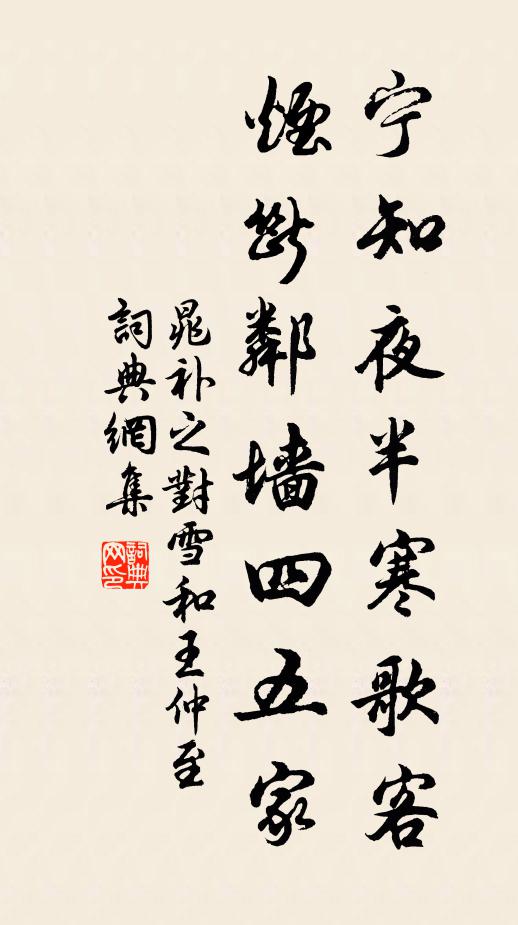 宁知夜半寒歌客
煙断鄰墙四五家
晁补之對雪和王仲至
詞典網集
詞典网印